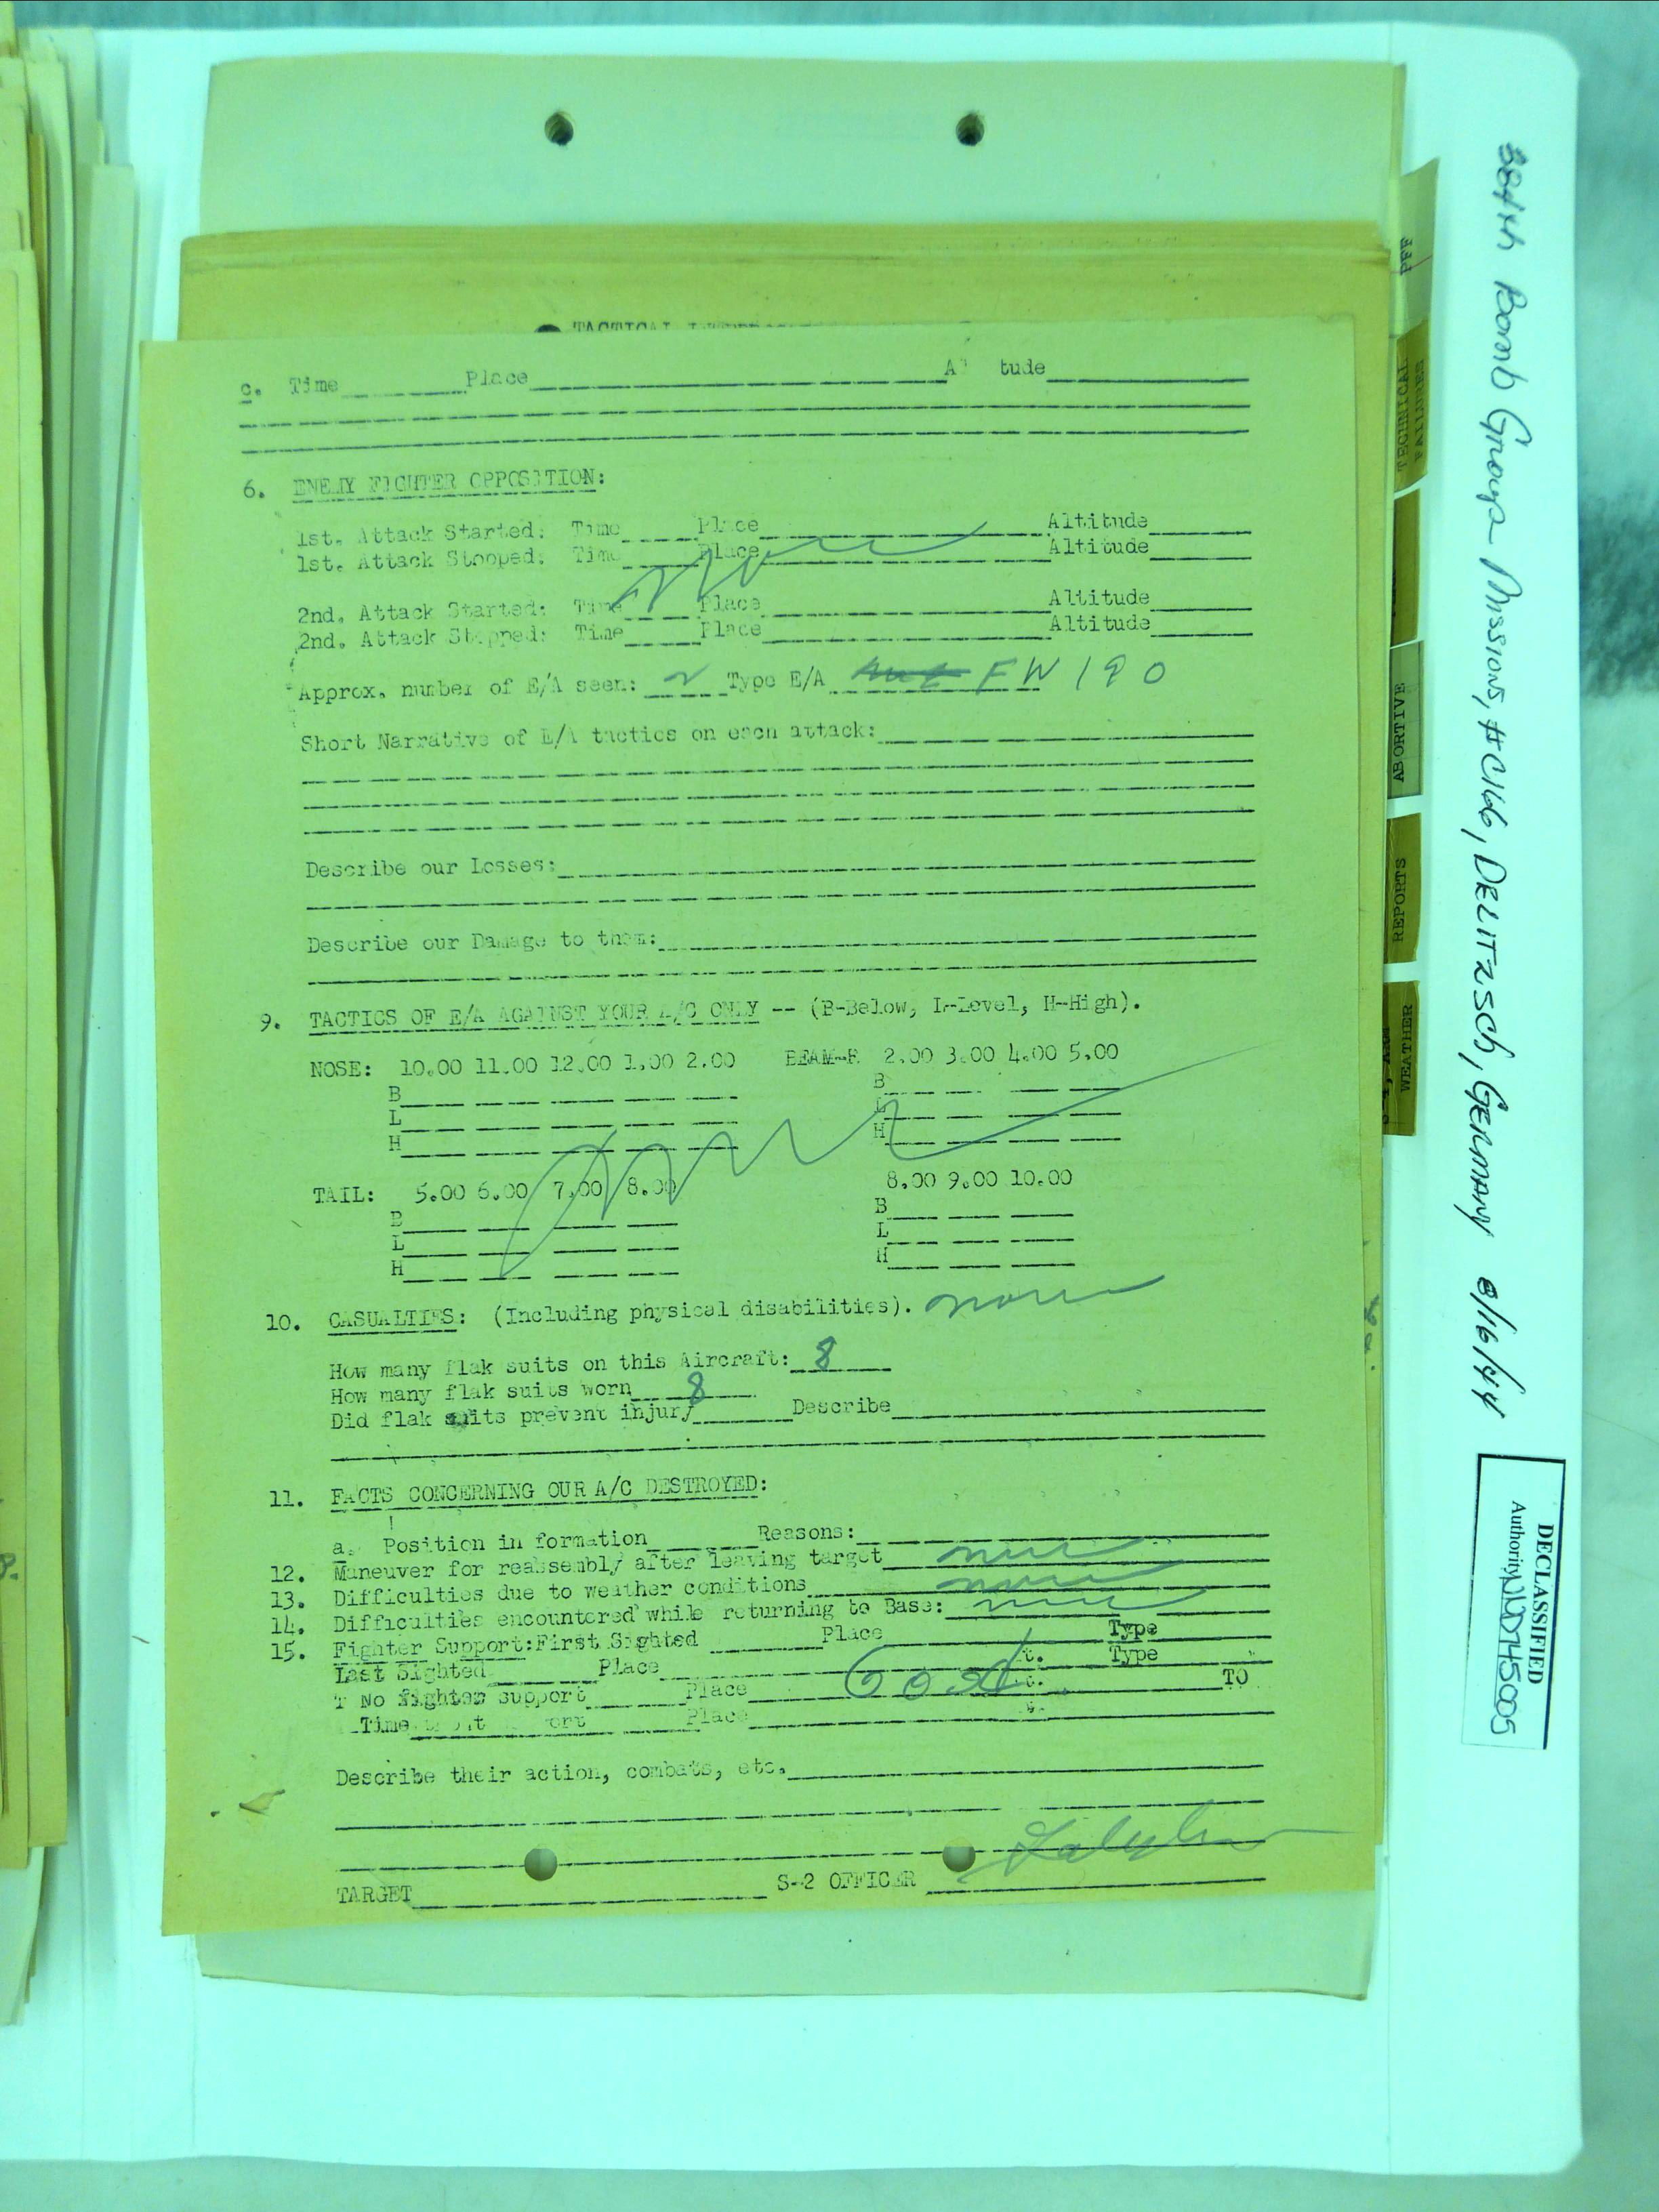 TACTICAL
c. Time Place A tude
6. ENEMY FIGHTER OPPOSITION:
1st. Attack Started: Time Place Altitude
1st. Attack Stopped: Time Place Altitude
None
2nd. Attack Started: Time Place Altitude
2nd. Attack Stopped: Time Place Altitude
Approx. number of E/A seen: 2 Type E/A FW 190
Short Narrative of E/A tactics on each attack:
Describe our Losses:
Describe our Damage to them:
9. TACTICS OF E/A AGAINST YOUR A/C ONLY -- (B-Below, L-Level, H-High).
NOSE: 10.00 11.00 12.00 1.00 2.00 BEAM-R 2.00 3.00 4.00 5.00
B B
L L
H H
None
TAIL: 5.00 6.00 7.00 8.00 8.00 9.00 10.00
B B
L L
H H
10. CASUALTIES: (Including physical disabilities). none
How many flak suits on this Aircraft: 8
How many flak suits worn 8
Did flak suits prevent injury Describe
11. FACTS CONCERNING OUR A/C DESTROYED:
a. Position in formation Reasons:
12. Maneuver for reassembly after leaving target none
13. Difficulties due to weather conditions none
14. Difficulties encountered while returning to Base: none
15. Fighter Support: First Sighted Place Type
Last Sighted Place t. Type
T No fighter support Place t. TO
Time ort Place
Good
Describe their action, combats, etc.
TARGET S-2 OFFICER
PFF
TECHNICAL FAILURES
ABORTIVE
REPORTS
WEATHER
384th Bomb Group Missions, #C166, DELITZSCH, GERMANY 8/16/44
DECLASSIFIED
Authority NND745005